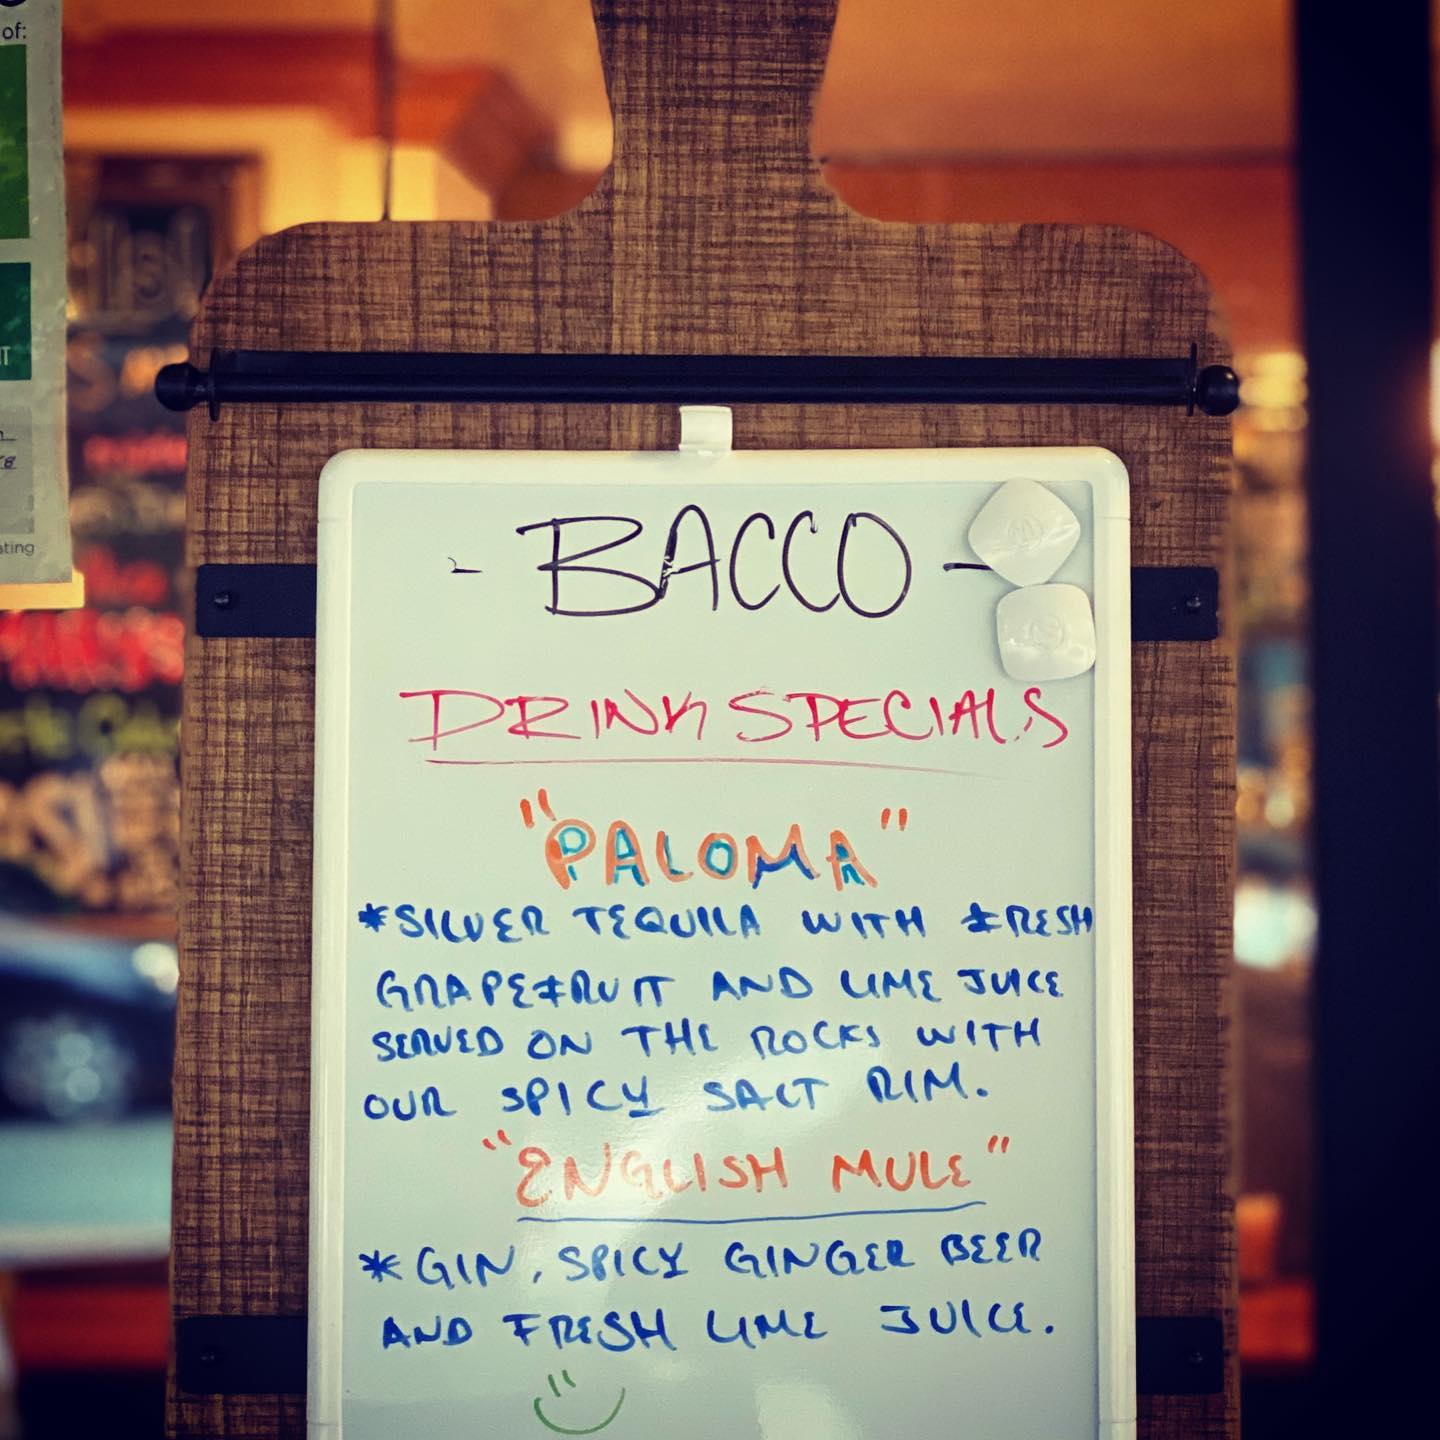 of:
- BACCO -
DRINK SPECIALS
"PALOMA"
*SILVER TEQUILA WITH FRESH
GRAPEFRUIT AND LIME JUICE
SERVED ON THE ROCKS WITH
OUR SPICY SALT RIM.
"ENGLISH MULE"
*GIN, SPICY GINGER BEER
AND FRESH LIME JUICE.